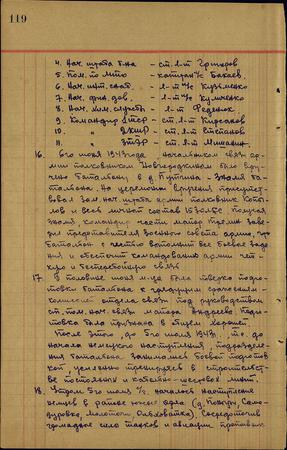 119
4. Нач. штаба б-на – ст. л-т Григоров
5. Пом. по МТО – капитан и/с Бакаев
6. Нач. инт. снаб. – л-т и/с Кузьменко
7. Нач. фин. дов. – л-т и/с Кулиненко
8. Нач. хим. службы – л-т Феденюк
9. Командир – ст. л-т Кирсанов
10. " – ст. л-т Степанов
11. " – ст. л-т
16. 6го июня 1943 года начальником связи ар-
мии полковником было вру-
чено батальону в д. Путчино – знамя ба-
тальона. На церемонии вручения присутст-
вовал зам. нач. штаба армии полковник
и весь личный состав Получая
знамя командир части майор заве-
рил представителя военного совета армии, что
батальон с честью выполнит все боевые зада-
ния и обеспечит командование армии чет-
кую и бесперебойную связь.
17. В половине июня м-ца была проверка подго-
товки батальона к грядущим сражениям –
комиссией отдела связи под руководством
ст. пом. нач. связи майора Андреева. Подго-
товка была признана в общем хорошей.
После этого до 5го июля 1943г., т.е. до
начала немецкого наступления, подразделе-
ния батальона занимались боевой подготов-
кой, усиленно тренируясь в строительст-
ве постоянных и кабельно-шестовых линий.
18. Утром 5го июля началось наступление
немцев в районе южнее Орла (д. Поныри, Само-
дуровка, Молотычи, ). Сосредоточив
громадные силы танков и авиации, противник